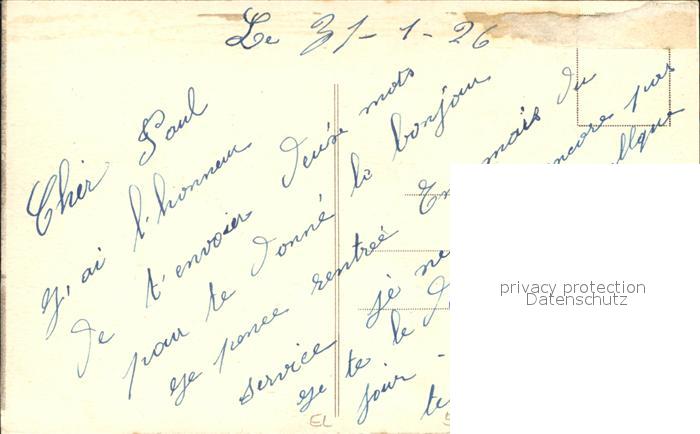 Le 31-1-26
Cher Paul
J'ai l'honneur
de t'envoier deuse mots
pour te donné le bonjour
Je pence rentrée En mais du
service je ne encore pas
Je te le quellque
jour -
te
privacy protection
Datenschutz
EL